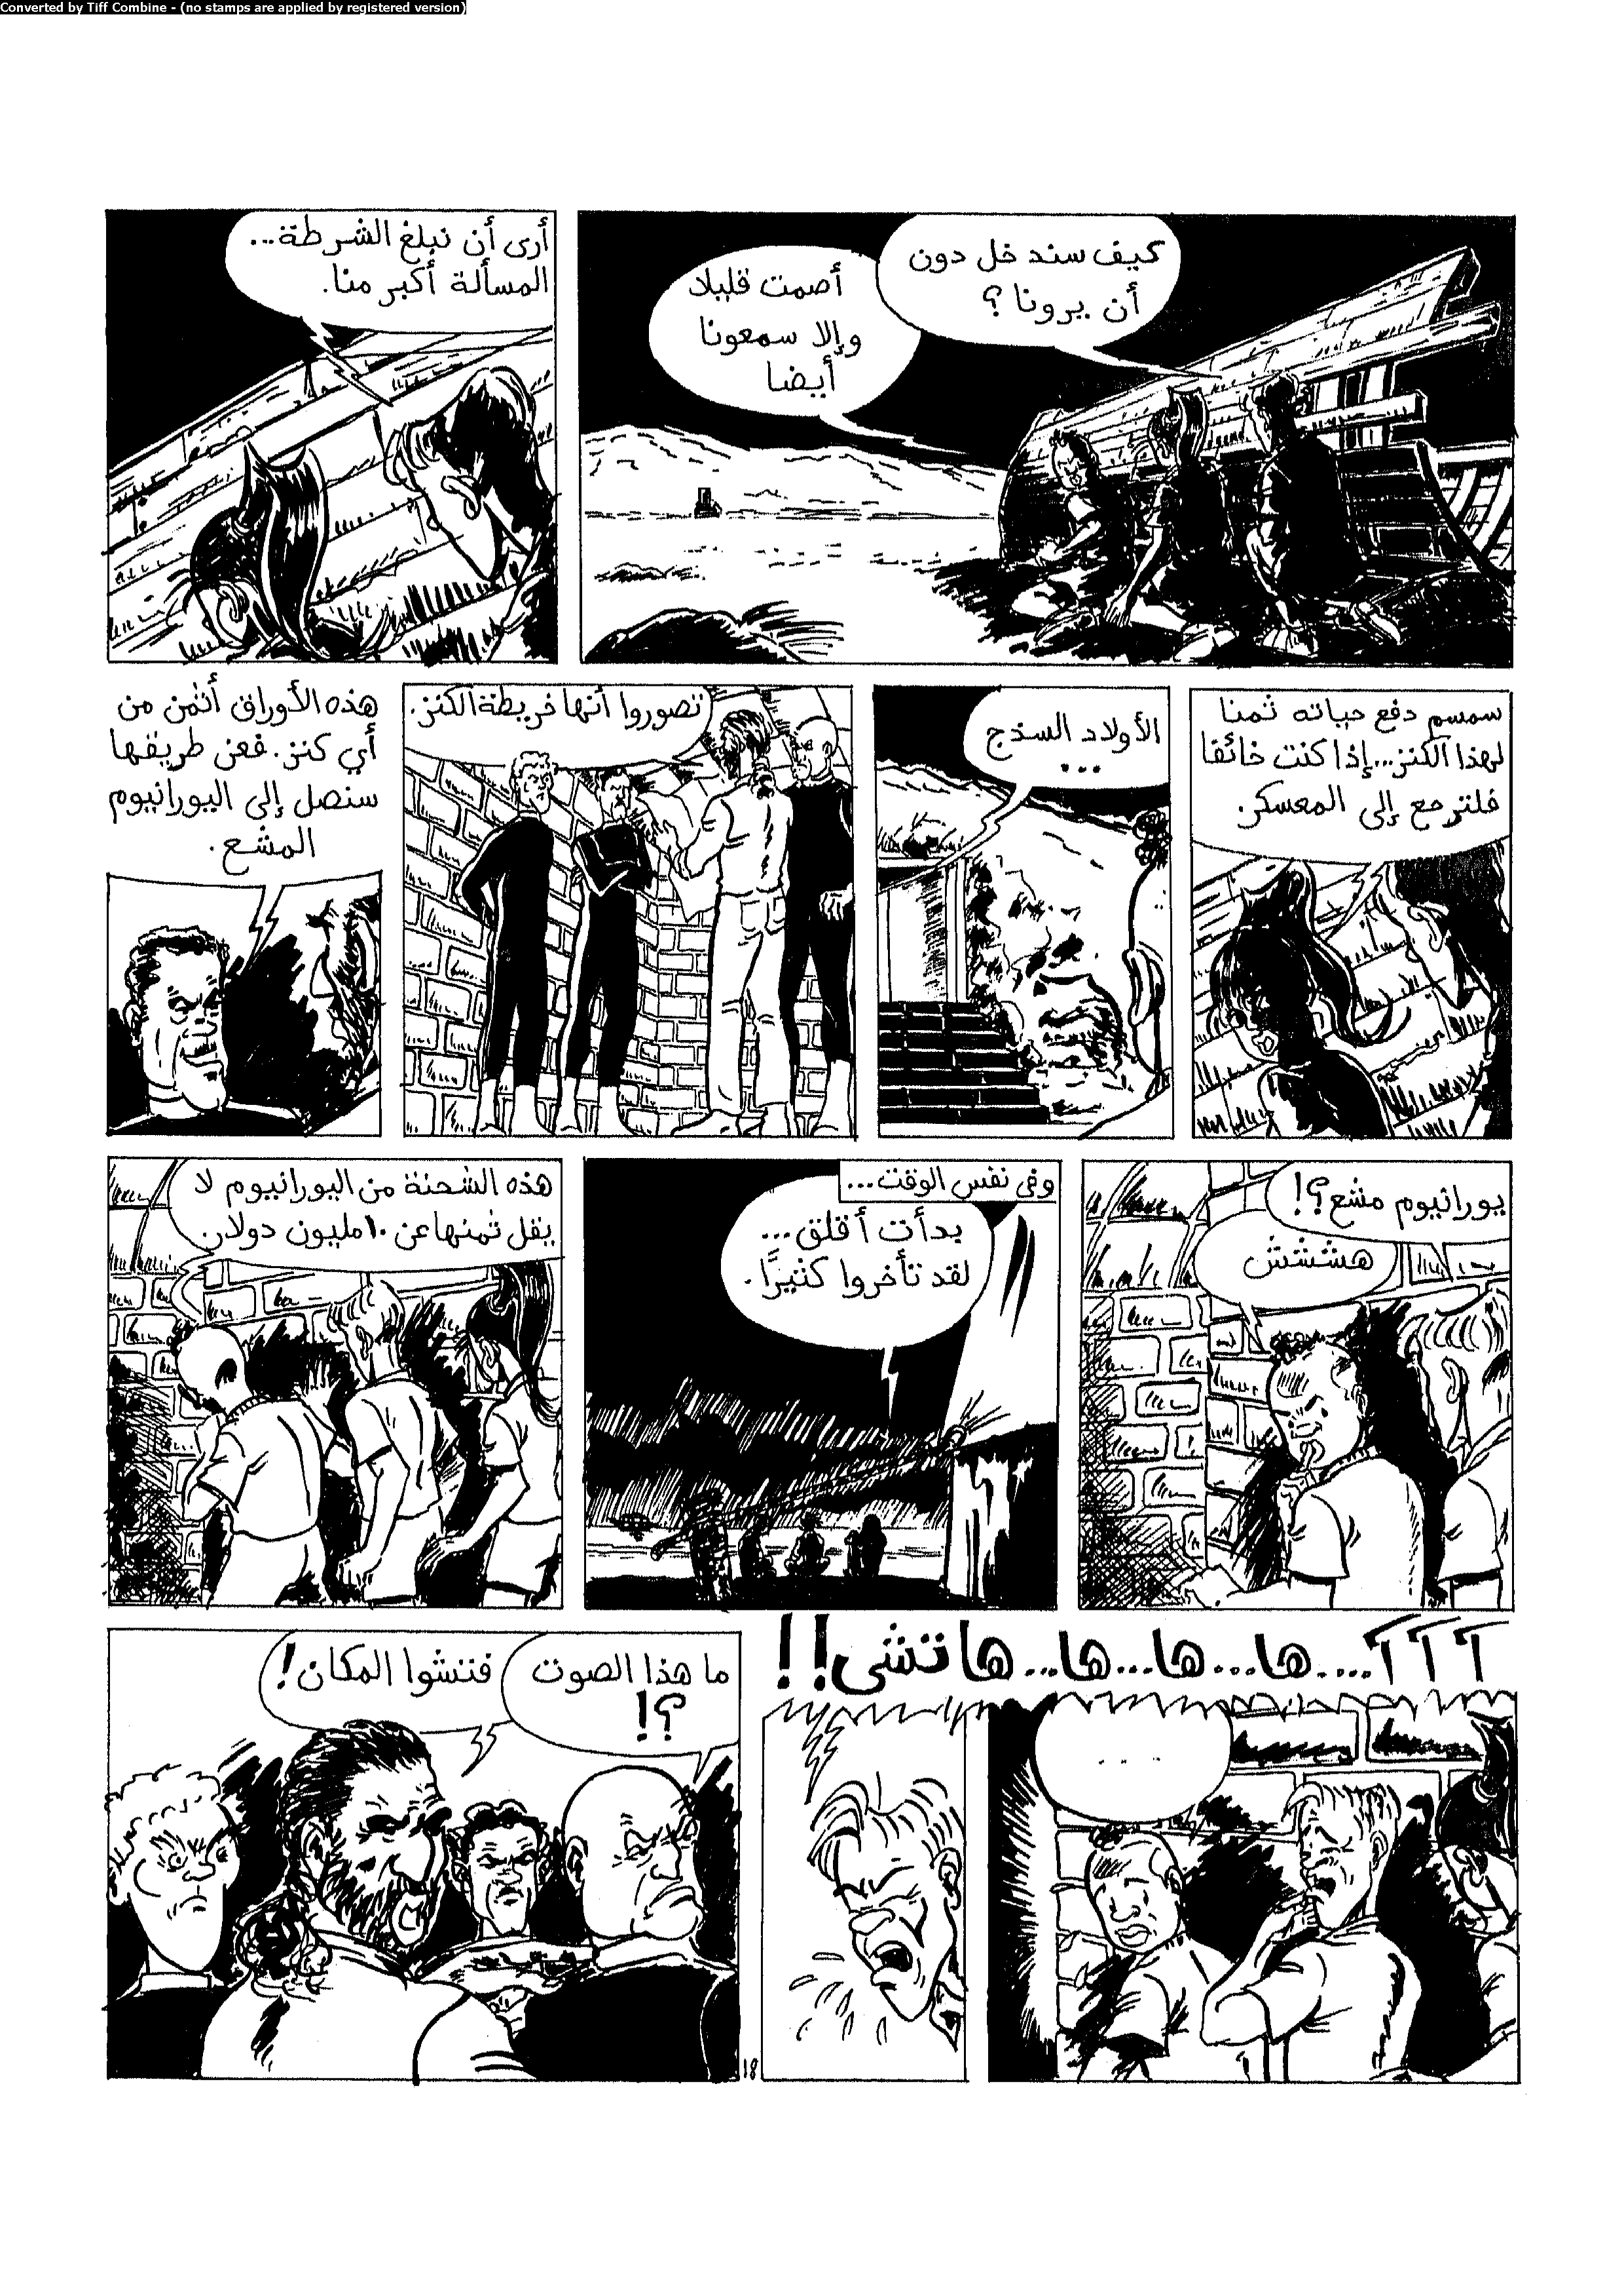 Converted by Tiff Combine - (no stamps are applied by registered version)
كيف سندخل دون
أن يرونا؟
أصمت قليلا
وإلا سمعونا
أيضا
أرى أن نبلغ الشرطة...
المسألة أكبر منا.
سمسم دفع حياته ثمنا
لهذا الكنز...إذا كنت خائفا
فلترجع إلى المعسكر.
الأولاد السذج
...
تصوروا أنها خريطة الكنز.
هذه الأوراق أثمن من
أي كنز. فعن طريقها
سنصل إلى اليورانيوم
المشع.
يورانيوم مشع؟!
هششش
وفى نفس الوقت...
بدأت أقلق...
لقد تأخروا كثيرًا.
هذه الشحنة من اليورانيوم لا
يقل ثمنها عن ١٠ مليون دولار.
آ آ آ....ها...ها...ها...هاتشى!!
. . . .
ما هذا الصوت
؟!
فتشوا المكان!
18